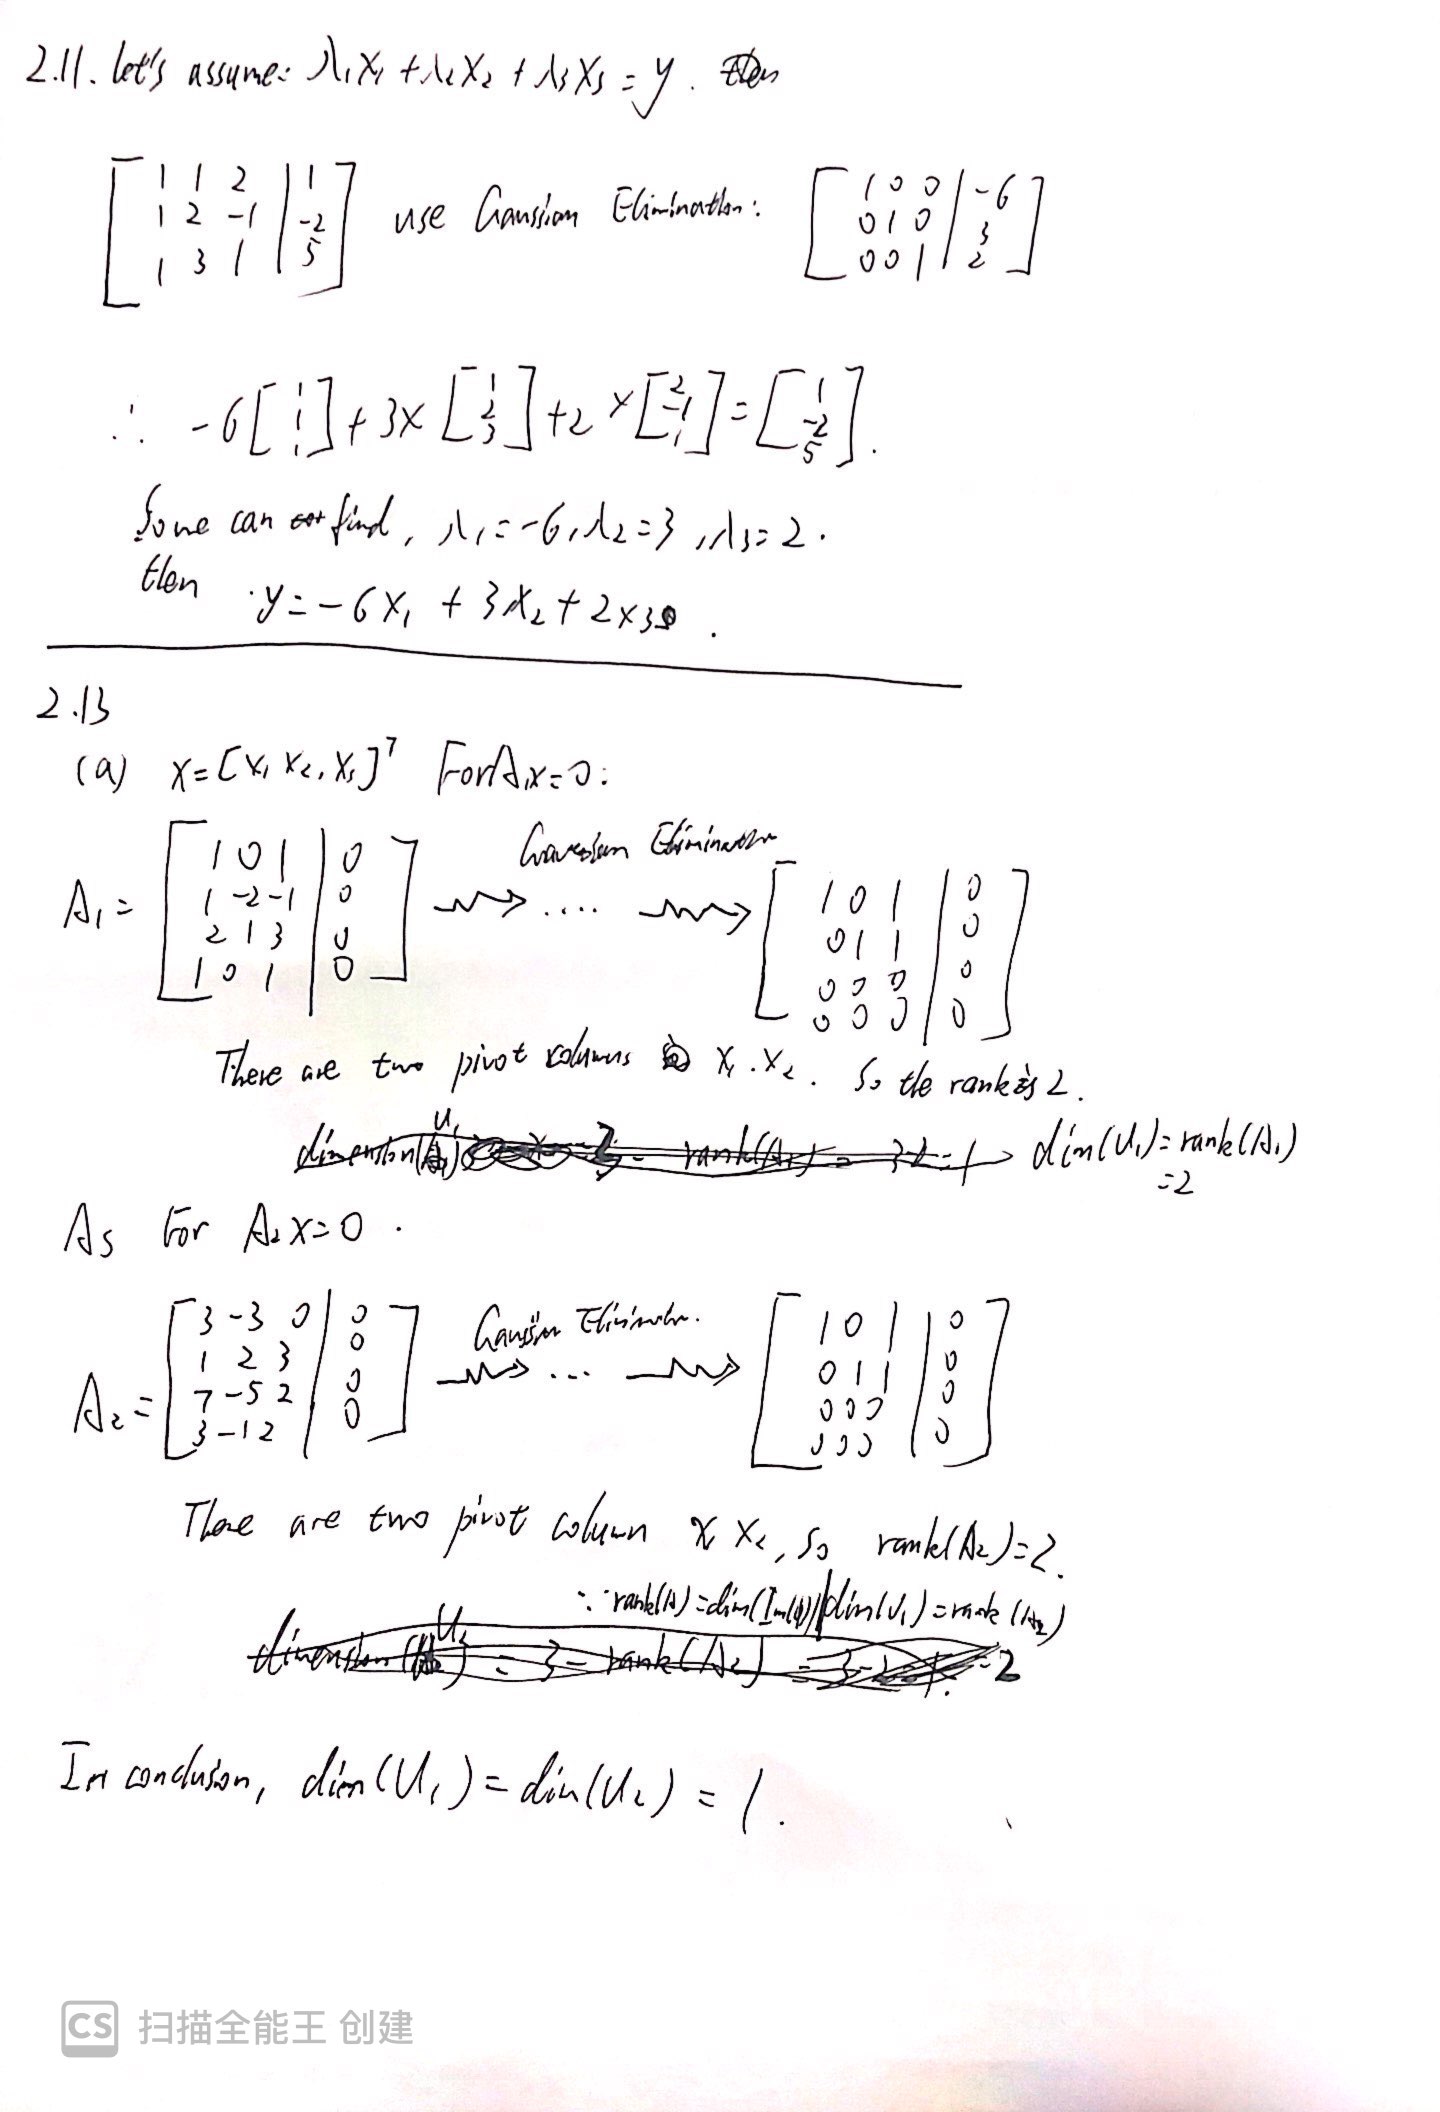 2.11. let's assume: λ₁x₁ + λ₂x₂ + λ₃x₃ = y. then
[1 1 2 | 1
1 2 -1 | -2
1 3 1 | 5] use Gaussian Elimination: [1 0 0 | -6
0 1 0 | 3
0 0 1 | 2]
∴ -6[1 1 1] + 3×[1 2 3] + 2×[2 -1 1] = [1 -2 5].
So we can find, λ₁=-6, λ₂=3, λ₃=2.
then y=-6x₁ + 3x₂ + 2x₃.
2.13
(a) x=[x₁ x₂, x₃]ᵀ For A₁x=0:
Gaussian Elimination
A₁ = [1 0 1 | 0
1 -2 -1 | 0
2 1 3 | 0
1 0 1 | 0] .... [1 0 1 | 0
0 1 1 | 0
0 0 0 | 0
0 0 0 | 0]
There are two pivot columns x₁.x₂. So the rank is 2.
dimension(U₁) - rank(A₁) = 3-2=1 → dim(U₁)=rank(A₁)
=2
As For A₂x=0.
Gaussian Elimination.
A₂ = [3 -3 0 | 0
1 2 3 | 0
7 -5 2 | 0
3 -1 2 | 0] ... [1 0 1 | 0
0 1 1 | 0
0 0 0 | 0
0 0 0 | 0]
There are two pivot column x₁ x₂, so rank(A₂)=2.
∵ rank(A)=dim(Im(A)) dim(U₁)=rank(A₂)
dimension(U₂) = 3 - rank(A₂) = 3-2 =2
In conclusion, dim(U₁)=dim(U₂) = 1.
CS 扫描全能王 创建